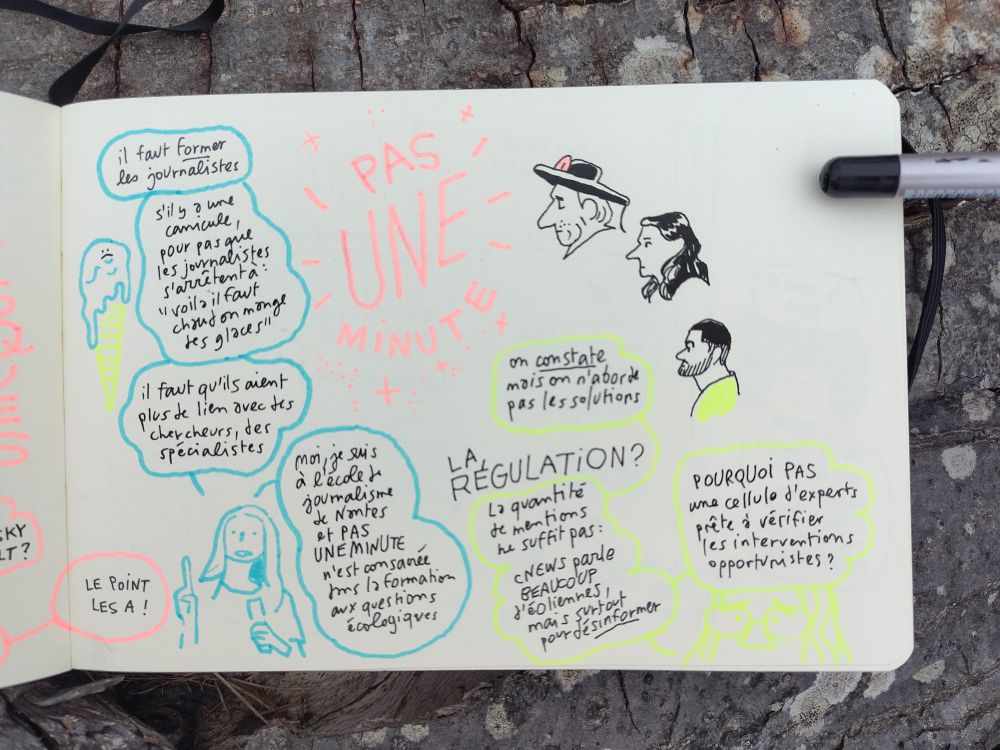 il faut former
les journalistes
s'il y a une
canicule,
pour pas que
les journalistes
s'arrêtent à :
"voilà il faut
chaud on mange
des glaces"
il faut qu'ils aient
plus de lien avec des
chercheurs, des
spécialistes
moi, je suis
à l'école de
journalisme
de Nantes
et PAS
UNE MINUTE
n'est consacrée
dans la formation
aux questions
écologiques
LE POINT
LES A !
SKY
LT ?
PAS
UNE
MINUTE
on constate
mais on n'aborde
pas les solutions
LA
RÉGULATION ?
La quantité
de mentions
ne suffit pas :
CNEWS parle
BEAUCOUP
d'éoliennes,
mais surtout
pour désinformer
POURQUOI PAS
une cellule d'experts
prête à vérifier
les interventions
opportunistes ?